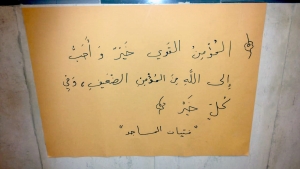 المُؤْمِنُ القَوِي خَيْرٌ وَ أَحَبُّ
إِلى اللَّهِ مِنَ المُؤْمِنِ الضعيفِ، وَفِي
كُلٍّ خَيْرٌ
"شباب المساجد"